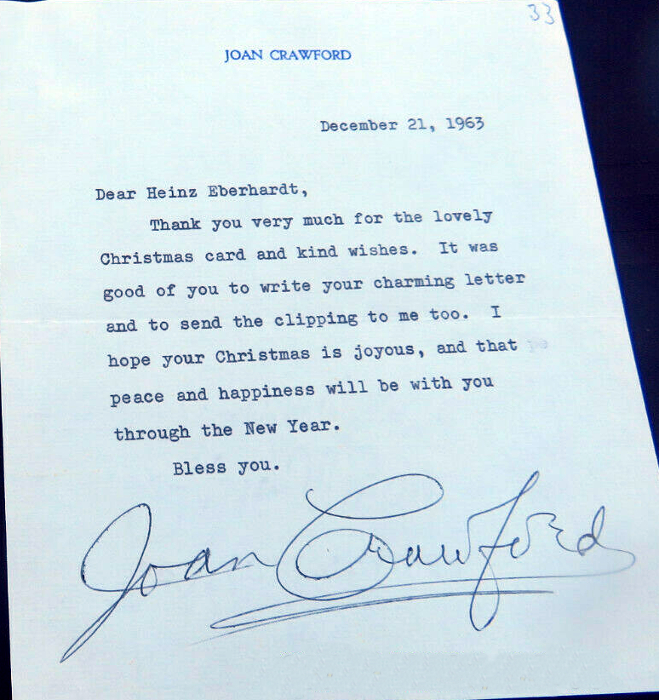 33
JOAN CRAWFORD
December 21, 1963
Dear Heinz Eberhardt,
Thank you very much for the lovely
Christmas card and kind wishes. It was
good of you to write your charming letter
and to send the clipping to me too. I
hope your Christmas is joyous, and that
peace and happiness will be with you
through the New Year.
Bless you.
Joan Crawford